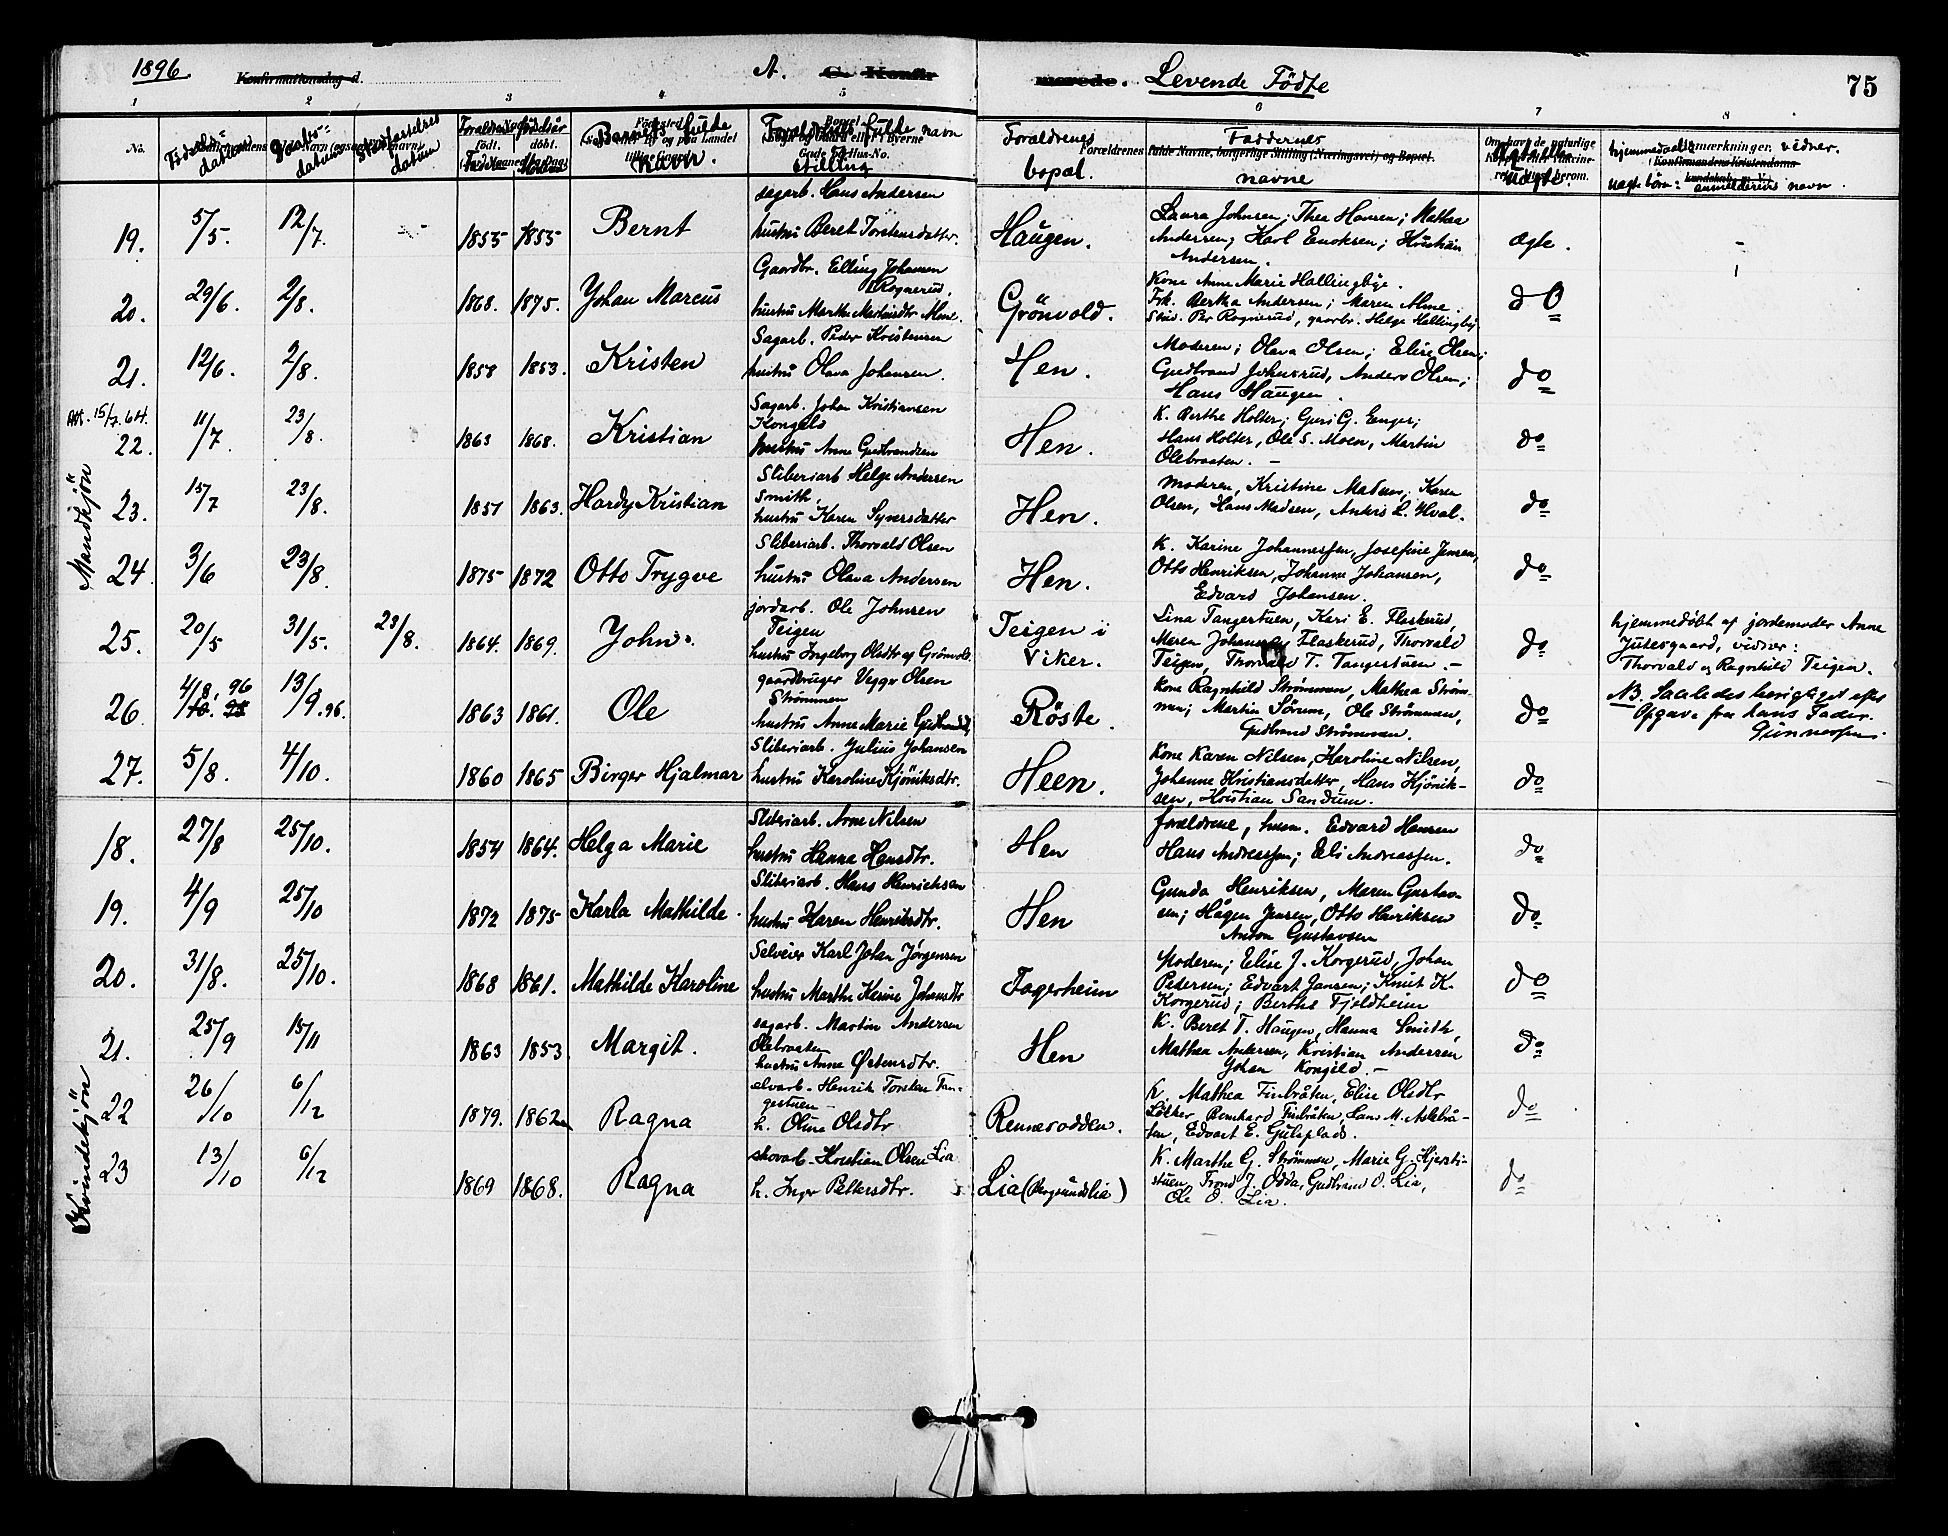 1896. Konfirmationsdag d. A. C. Konfir merede. Levende Födte 75
1 2 3 4 5 6 7 8
No. Födsels- datum Daabs- datum Stadfæstelses datum Forældrenes fødselsaar Faderens Moderens Barnets fulde navn Forældrenes fulde navn stilling Forældrenes bopæl. Faddernes navne Ægte eller uægte. hjemmedøbte vidner. uægte børn: anmelderens navn.
Mandkjön
sagarb. Hans Andersen
19. 5/5. 12/7. 1855 1855 Bernt hustru Beret Torstensdatter. Haugen. Laura Johnsen; Thea Hansen; Mathea Andersen; Karl Enoksen; Kristian Andersen. Ægte.
Gaardbr. Elling Johansen Rognerud,
20. 29/6. 2/8. 1868. 1875. Johan Marcus hustru Marthe Mathisdtr Alme. Grönvold. Kone Anne Marie Hallingbye. Frk. Bertha Andersen; Maren Alme. Stud. Per Rognerud, gaarbr. Helge Hallingby. do
Sagarb. Peder Kristensen
21. 12/6. 2/8. 1858 1853. Kristen hustru Olava Johansen. Hen. Moderen; Olava Olsen; Elise Olsen; Gudbrand Johnsrud, Anders Olsen; Hans Haugen. do
Att. 15/7.64. Sagarb. Johan Kristiansen Kongelf
22. 11/7. 23/8. 1863 1868. Kristian hustru Anne Gudbrandsen Hen. K. Berthe Holter; Guri G. Enger; Hans Holter, Ole S. Moen, Martin Olebraaten. do
Sliberiarb Helge Andersen Smith,
23. 15/7 23/8. 1857 1863. Hardy Kristian hustru Karen Syversdatter Hen. Moderen, Kristine Madsen; Karen Olsen, Hans Madsen, Anders L. Hval. do
Sliberiarb. Thorvald Olsen
24. 3/6 23/8. 1875 1872 Otto Trygve hustru Olava Andersen Hen. K. Karine Johannessen, Josefine Jensen, Otto Henriksen, Johanne Johansen, Edvard Johansen. do
jordarb. Ole Johnsen Teigen
25. 20/5 31/5. 23/8. 1864. 1869. John. hustru Ingeborg Olsdtr af Grönvold. Teigen i Viker. Lina Tangertuen, Kari E. Flaskerud, Maren Johannesen Flaskerud, Thorvald Teigen, Thorvald T. Tangertuen. do hjemmedøbt af jordemoder Anne Jutesgaard, vidner: Thorvald og Ragnhild Teigen.
gaardbruger Vegge Olsen Strömmen
26. 4/8. 96 10. 95 13/9.96. 1863 1861. Ole hustru Anne Marie Gudbrandsd. Röste. Kone Ragnhild Strømmen, Mathea Strømmen; Martin Sörum, Ole Strømmen, Gudbrand Strømmen. do NB. Saaledes berigtiget efter Opgave fra hans Fader. Gunnersen.
Sliberiarb. Julius Johansen
27. 5/8. 4/10. 1860 1865 Birger Hjalmar hustru Karoline Kjöniksdtr. Heen. Kone Karen Nilsen, Karoline Nilsen, Johanne Kristiansdatter, Hans Kjöniksen, Kristian Sandum. do
Kvindekjön
Sliberiarb. Arne Nilsen
18. 27/8 25/10. 1854 1864. Helga Marie hustru Hanna Hansdtr. Hen forældrene, husm. Edvard Hansen Hans Andreassen; Eli Andreassen. do
Sliberiarb. Hans Henriksen
19. 4/9 25/10 1872 1875 Karla Mathilde. hustru Karen Henriksdtr. Hen Gunda Henriksen, Maren Gustavsen; Hågen Jensen, Otto Henriksen Anton Gustavsen do
Selveier Karl Johan Jørgensen
20. 31/8. 25/10. 1868 1861. Mathilde Karoline hustru Marthe Karine Johansdtr Fagerheim Moderen; Elise J. Korgerud, Johan Petersen; Edvart Jansen; Knut K. Korgerud; Berthe Fjeldheim do
sagarb. Martin Andersen Olebraaten
21. 25/9 15/11 1863 1853. Margit. hustru Anne Østensdtr. Hen K. Beret T. Haugen, Hanna Smith, Mathea Andersen, Kristian Andersen Johan Kongeld. do
elvarb. Henrik Torsten Tangestuen
22 26/10 6/12 1879. 1862 Ragna h. Oline Olsdtr Rennesodden. K. Mathea Finbråten, Elise Olsdtr Løkker, Bernhard Finbråten, Lars M. Aslebråten, Edvart E. Gulsplads. do
skovarb. Kristian Olsen Lia
23 13/10 6/12 1869 1868. Ragna h. Inger Pettersdtr. Lia (Bergsundslia) K. Marthe G. Strömmen, Marie G. Hjerstistuen, Trond J. Odda, Gudbrand O. Lia, Ole O. Lia. do